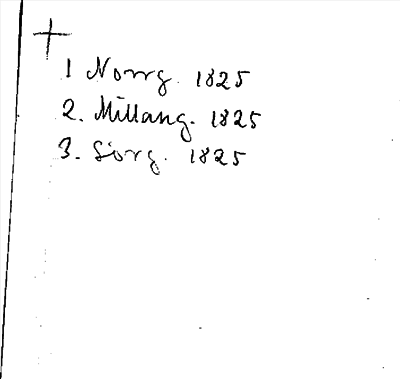 1 Norrg. 1825
2. Mellang. 1825
3. Sörg. 1825